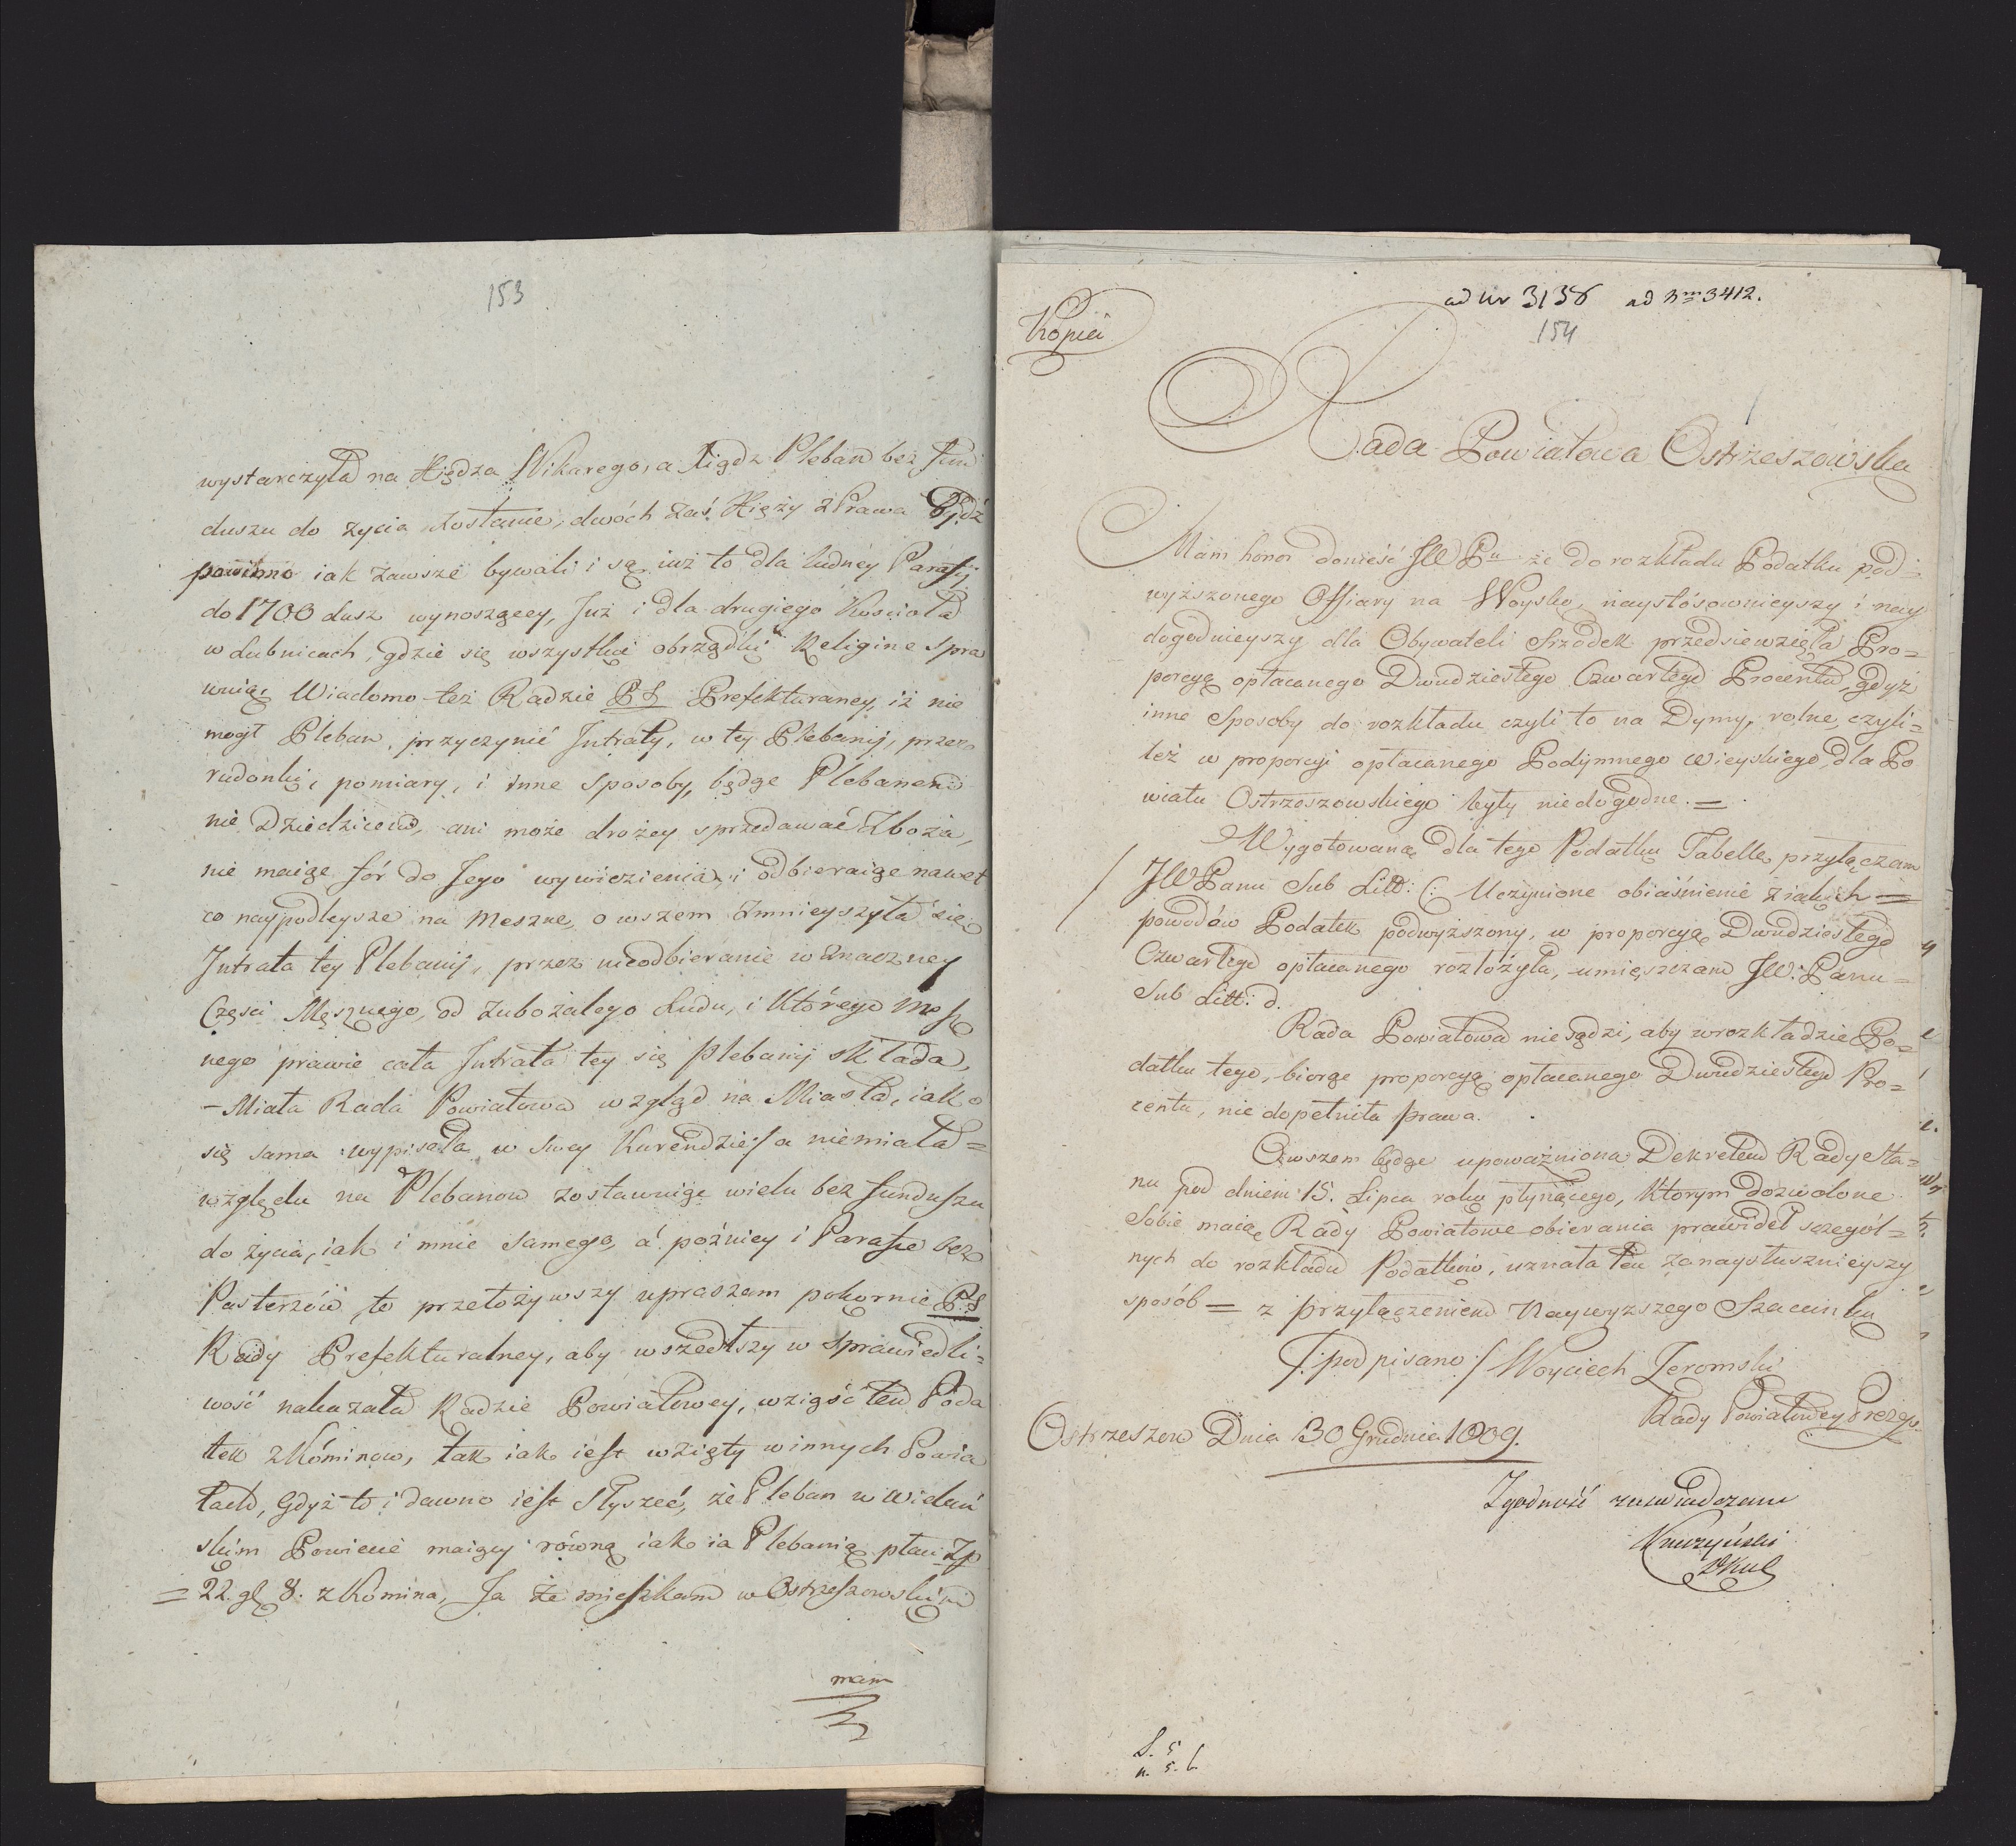 153
wystarczyła na Xiędza Wikarego, a Xiądz Pleban bez fun
duszu do życia zostanie, dwóch zaś Xięży z Prawa Bydź
powinno iak zawsze bywali i są iuż to dla ludney Parafij
do 1700 dusz wynoszącey, Już i dla drugiego Kościoła
w Lubnicach, gdzie się wszystkie obrządki Religine spra
wuią; Wiadomo też Radzie PS Prefekturaney, iż nie
mógł Pleban, przyczynić Intraty, w tey Plebanij, przez
rudonki, pomiary, i inne sposoby, będąc Plebanem
nie Dziedzicem, ani może drożey sprzedawać Zboża,
nie maiąc fór do Jego wywiezienia, i odbieraiąc nawet
co naypodleysze na Meszne, owszem zmnieyszyła się
Intrata tey Plebanij, przez nieodbieranie w znaczney
Częsci Męsznego, od zubożałego Ludu, i Którego Mesz
nego prawie cała Intrata tey się plebanij składa,
– Miała Rada Powiatowa wzgląd na Miasta, iak
się sama wypisała w swey Kurendzie / a nie miała =
względu na Plebanow zostawuiąc wielu bez funduszu
do życia, iak i mnie samego, á poźniey i Parafie bez
Pasterzów, to przełożywszy upraszam pokornie P.S
Rady Prefekturalney, aby wszedłszy w sprawiedli =
wość nakazała Radzie Powiatowey, wziąść ten Poda
tek z Kóminow, tak iak iest wzięty w innych Powia
tach, Gdyż to i dawno iest słyszeć, że Pleban w Wieluń
skim Powiecie maiący równą iak ia Plebanią płaci Zp
= 22. gł 8. z Kómina, Ja że mieszkam w Ostrzeszowskim
mam
ad Nr 3138 ad Nrm 3412.
154
Kopia
Rada Powiatowa Ostrzeszowska
Mam honor donieść JW Pu że do rozkładu Podatku pod =
wyższonego Offiary na Woysko, naystósownieyszy i nay
dogodnieyszy dla Obywateli srzodek przedsiewzięła Pro =
porcyą opłacanego Dwudziestego Czwartego Procentu, gdyż
inne sposoby do rozkładu czyli to na Dymy, rolne, czyli =
też w proporcyi opłacanego Podymnego wieyskiego, dla Po
wiatu Ostrzeszowskiego były niedogodne. =
Wygotowaną dla tego Podatku Tabellę przyłączam
/ JW Panu Sub Litt: C: Uczynione obiaśnienie z iakich =
powodów Podatek podwyższony, w proporcyą Dwudziestego
Czwartego opłacanego rozłożyła, umieszczam JW: Panu =
Sub Litt: d.
Rada Powiatowa nie sądzi, aby w rozkładzie Po =
datku tego, biorąc proporcyą opłacanego Dwudziestego Pro =
centu, nie dopełniła prawa.
Owszem będąc upoważniona Dekretem Rady Sta =
nu pod dniem 15. Lipca roku płynącego, którym dozwolone
sobie maią Rady Powiatowe obierania prawideł szczegól =
nych do rozkładu Podatków, uznała ten za naysłusznieyszy
sposób = z przyłączeniem Naywyższego Szacunku
/: podpisano :/ Woyciech Jeromski
Rady Powiatowey Prezes.
Ostrzeszów Dnia 30 Grudnia 1809.
Zgodność zaswiadczam